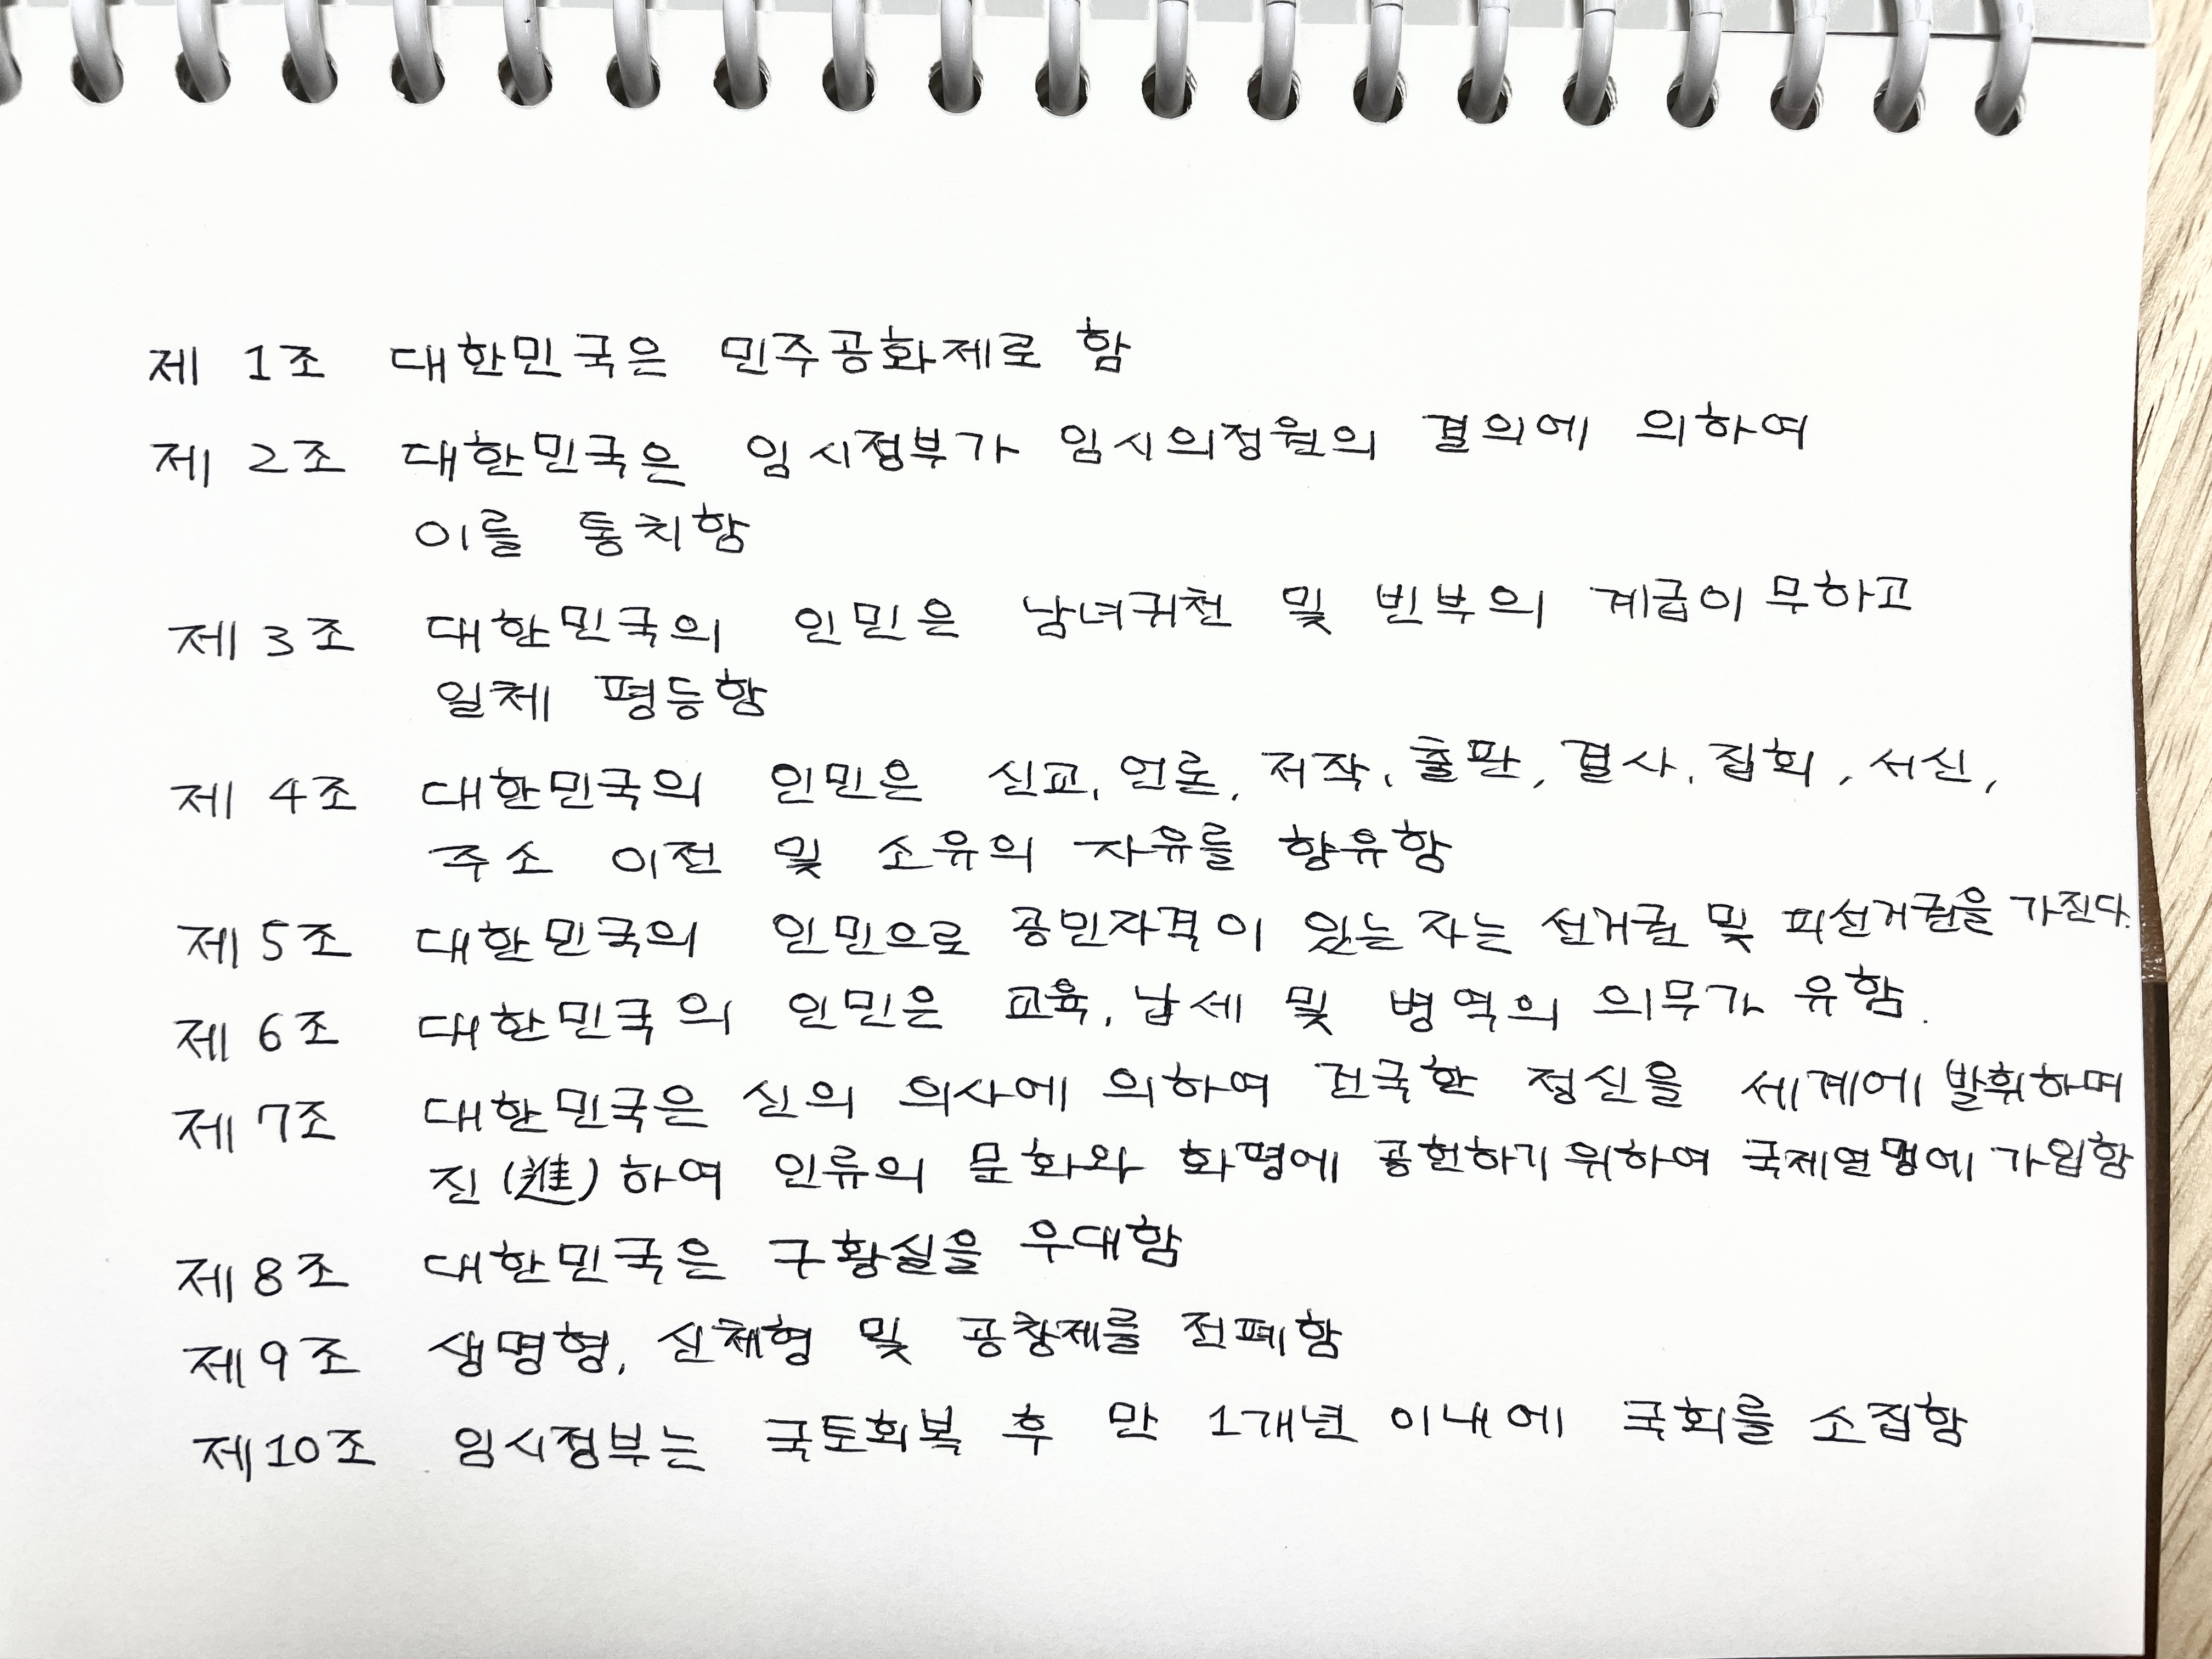 제 1조 대한민국은 민주공화제로 함
제 2조 대한민국은 임시정부가 임시의정원의 결의에 의하여
이를 통치함
제 3조 대한민국의 인민은 남녀귀천 및 빈부의 계급이 무하고
일체 평등함
제 4조 대한민국의 인민은 신교, 언론, 저작, 출판, 결사, 집회, 서신,
주소 이전 및 소유의 자유를 향유함
제 5조 대한민국의 인민으로 공민자격이 있는 자는 선거권 및 피선거권을 가진다.
제 6조 대한민국의 인민은 교육, 납세 및 병역의 의무가 유함.
제 7조 대한민국은 신의 의사에 의하여 건국한 정신을 세계에 발휘하며
진(進)하여 인류의 문화와 화평에 공헌하기 위하여 국제연맹에 가입함
제 8조 대한민국은 구황실을 우대함
제 9조 생명형, 신체형 및 공창제를 전폐함
제 10조 임시정부는 국토회복 후 만 1개년 이내에 국회를 소집함